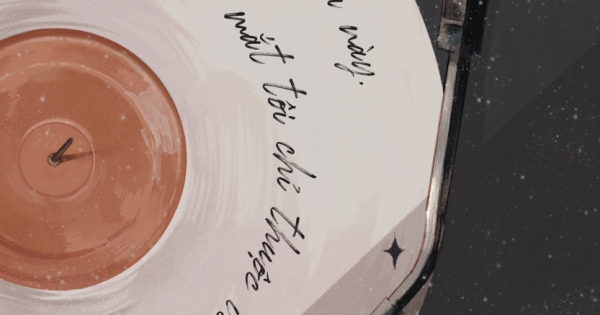 này.
mắt tôi chỉ thuộc